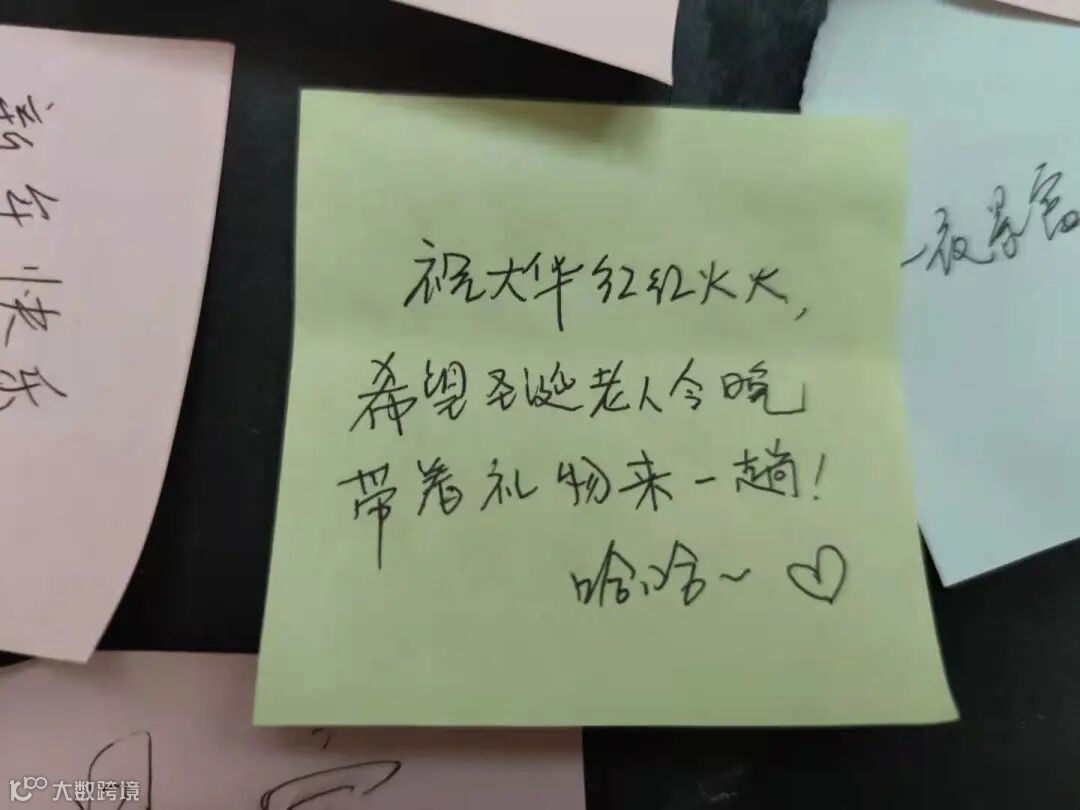 新年快乐
祝大华红红火火,
希望圣诞老人今晚
带着礼物来一趟!
哈哈~ ♡
一夜暴富
大数跨境